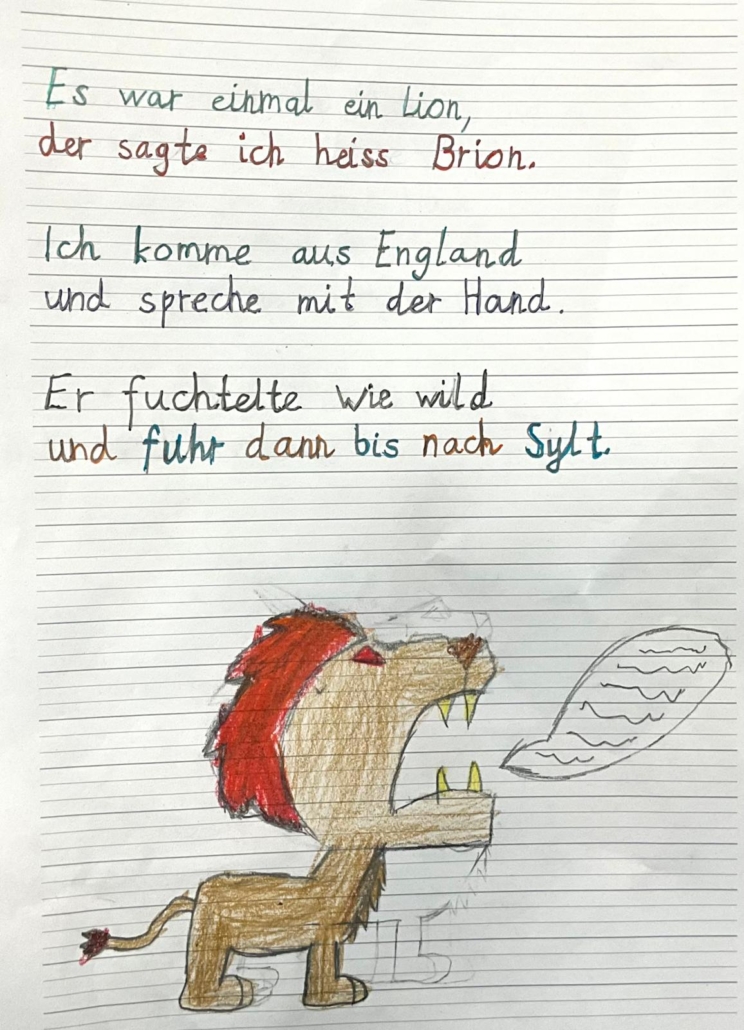 Es war einmal ein Lion,
der sagte ich heiss Brion.
Ich komme aus England
und spreche mit der Hand.
Er fuchtelte wie wild
und fuhr dann bis nach Sylt.